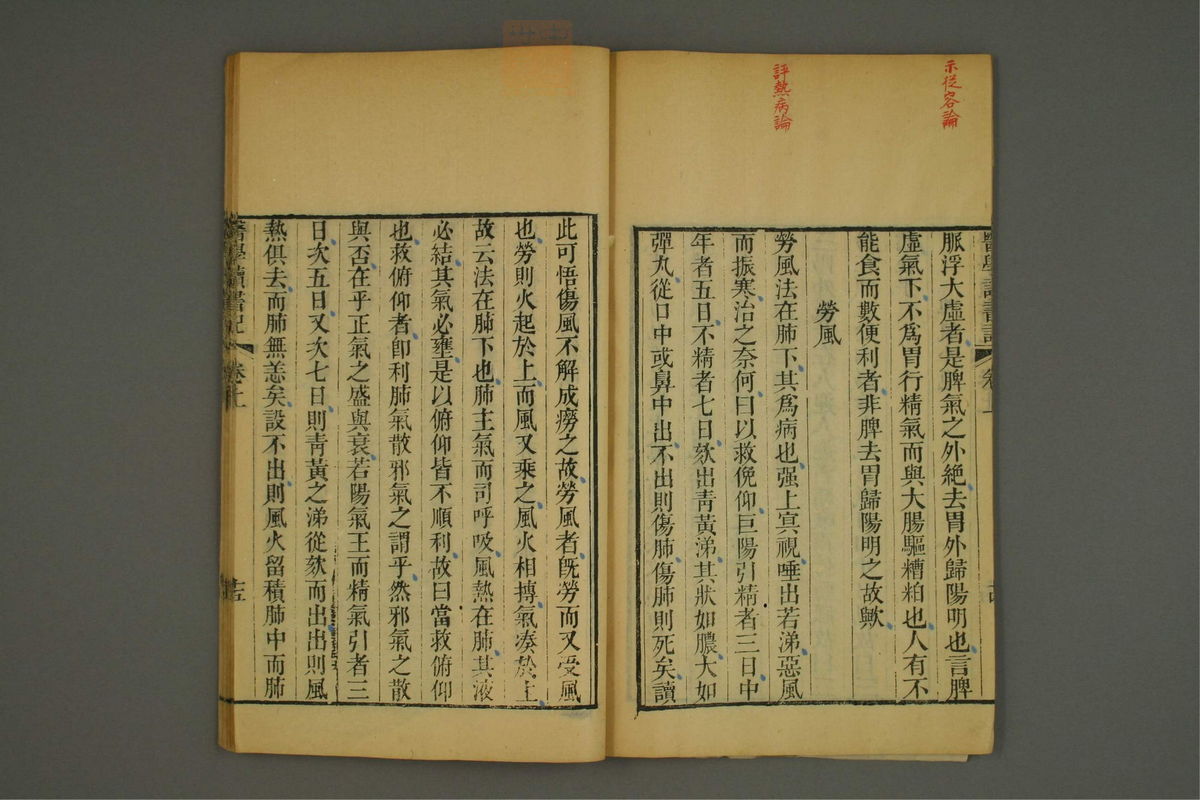 示從容論
評熱病論
脈浮大虛者是脾氣之外絶去胃外歸陽明也言脾
虛氣下不爲胃行精氣而與大腸驅糟粕也人有不
能食而數便利者非脾去胃歸陽明之故歟
勞風
勞風法在肺下其爲病也强上冥視唾出若涕惡風
而振寒治之奈何曰以救俛仰巨陽引精者三日中
年者五日不精者七日欬出靑黃涕其狀如膿大如
彈丸從口中或鼻中出不出則傷肺傷肺則死矣讀
此可悟傷風不解成癆之故勞風者旣勞而又受風
也勞則火起於上而風又乘之風火相摶氣凑於上
故云法在肺下也肺主氣而司呼吸風熱在肺其液
必結其氣必壅是以俯仰皆不順利故曰當救俯仰
也救俯仰者卽利肺氣散邪氣之謂乎然邪氣之散
與否在乎正氣之盛與衰若陽氣王而精氣引者三
日次五日又次七日則靑黃之涕從欬而出出則風
熱俱去而肺無恙矣設不出則風火留積肺中而肺
醫學讀書記 卷上